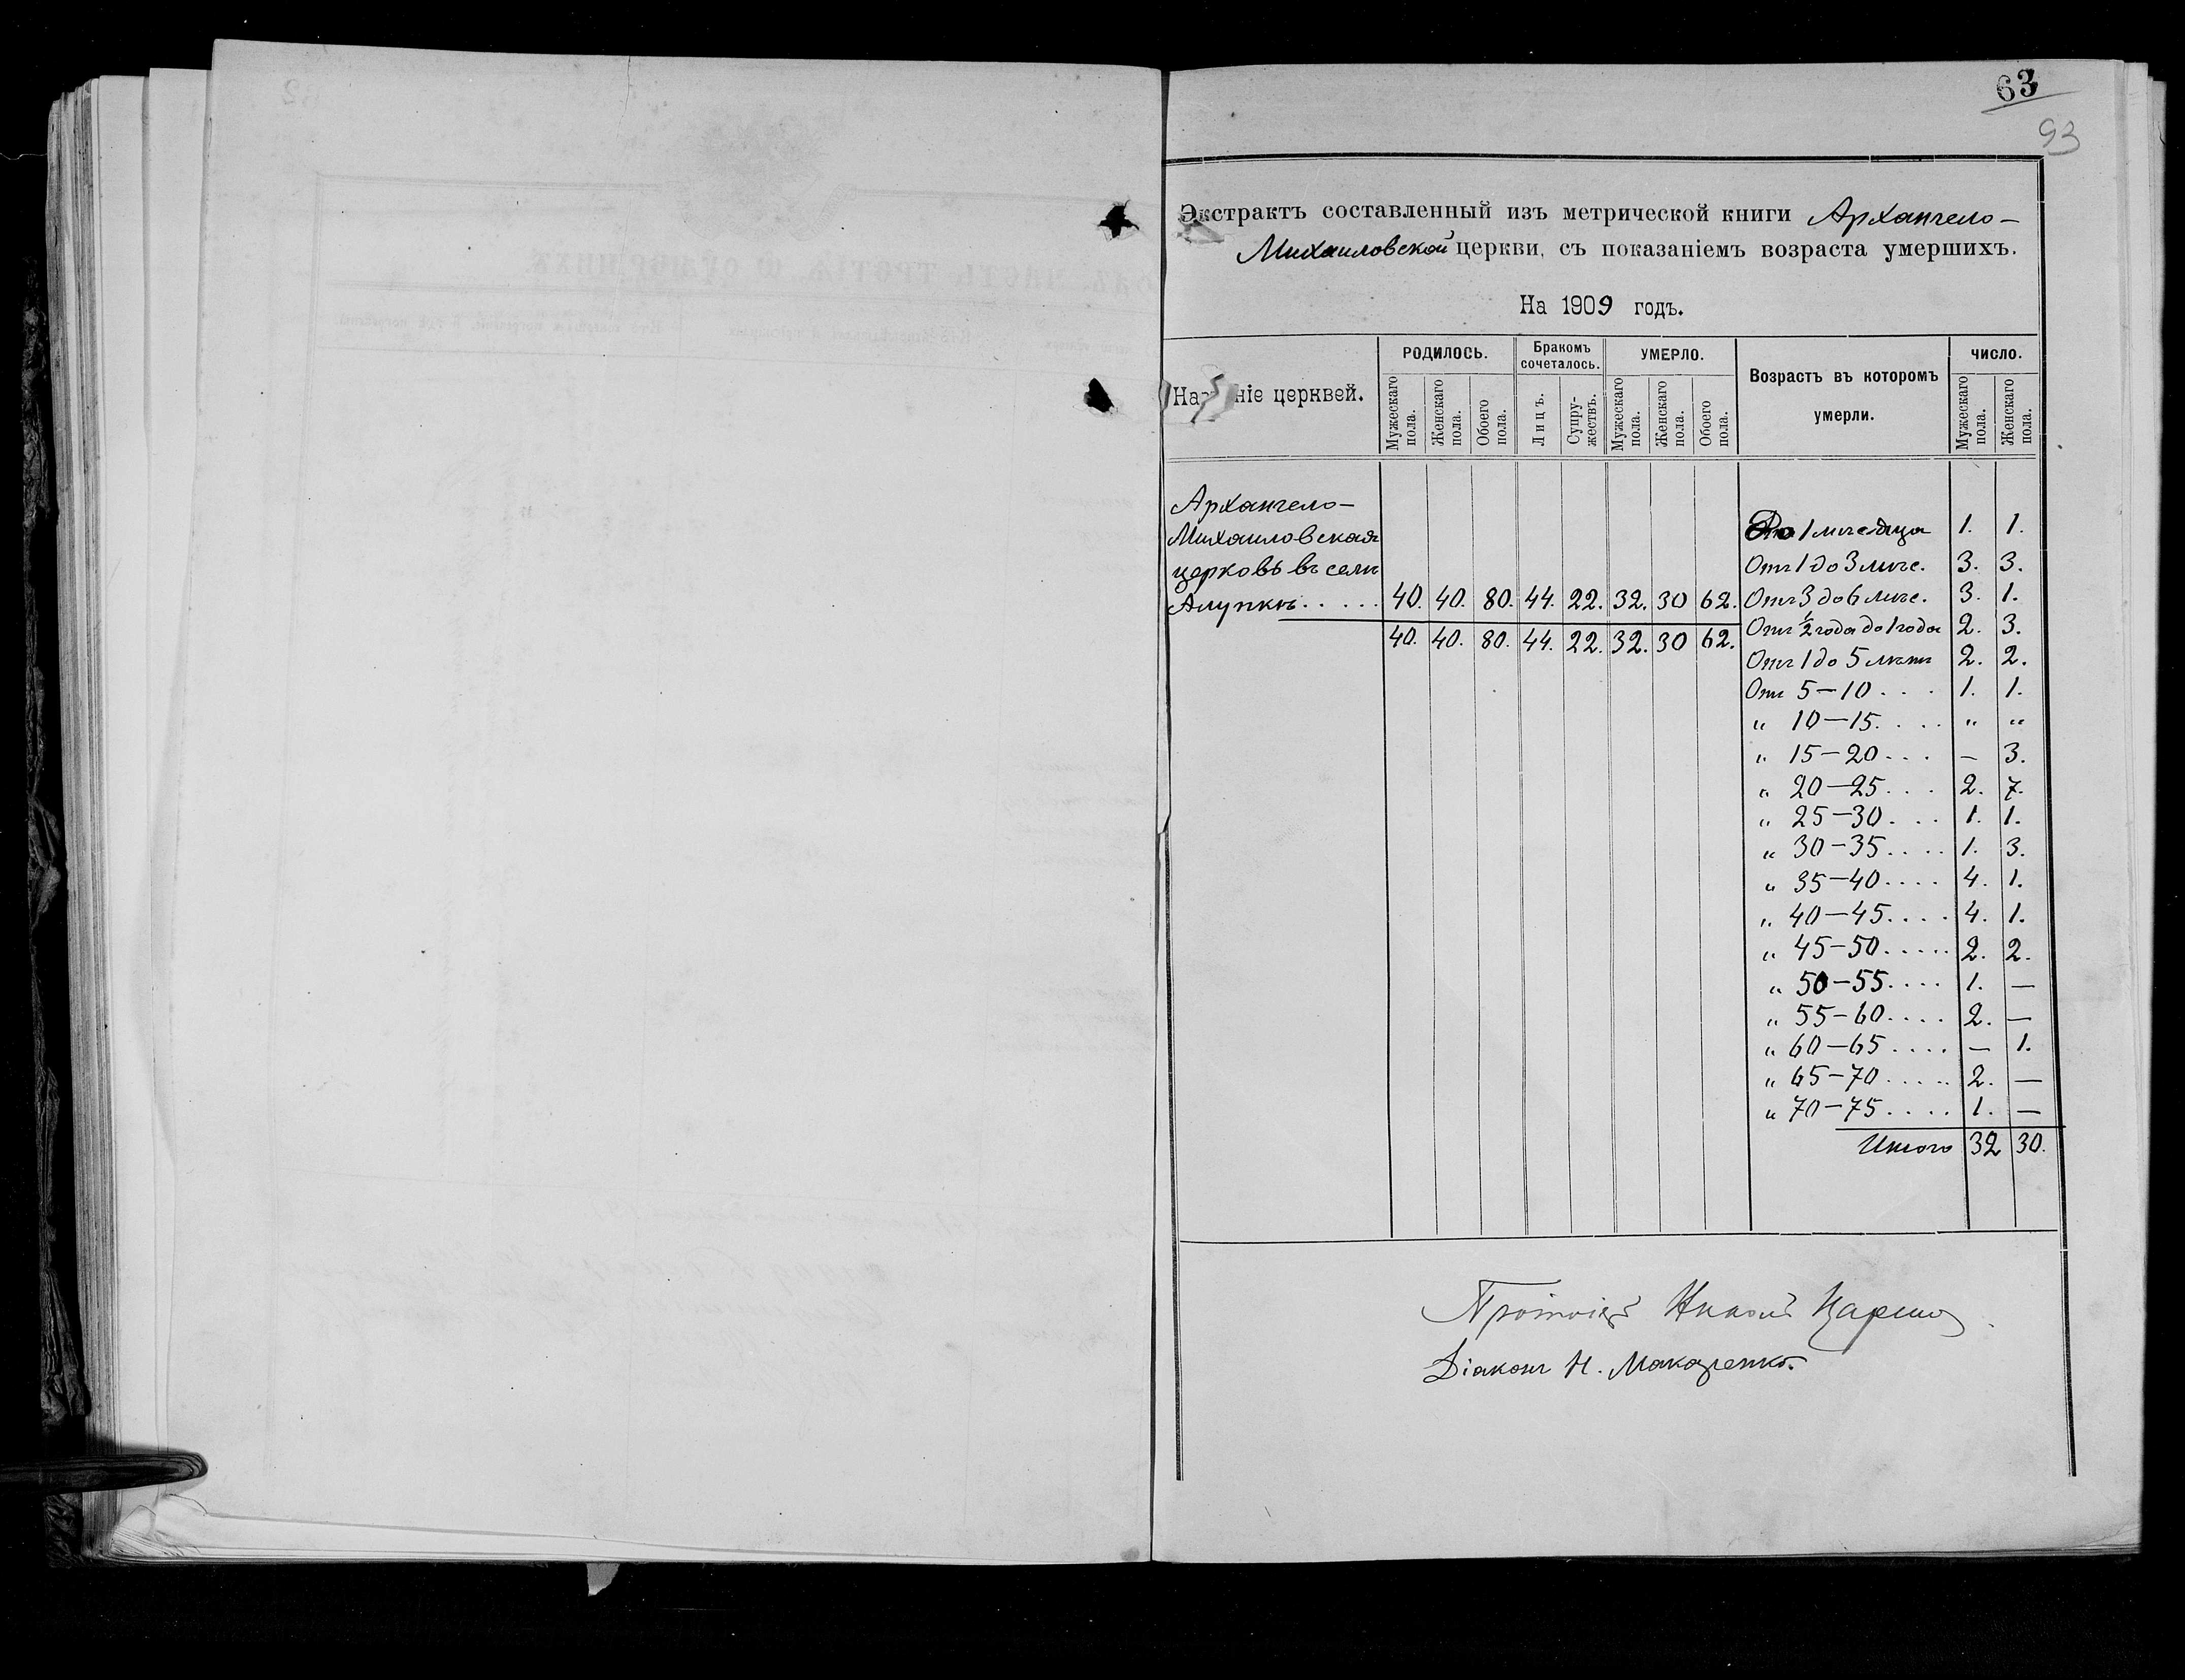 63
93
Экстрактъ составленный изъ метрической книги Архангело-
Михаиловской церкви, съ показаніемъ возраста умершихъ.
На 1909 годъ.
Названіе церквей.
РОДИЛОСЬ.
Бракомъ сочеталось.
УМЕРЛО.
Возрастъ въ которомъ умерли.
ЧИСЛО.
Мужескаго пола.
Женскаго пола.
Обоего пола.
Лицъ.
Супружествъ.
Мужескаго пола.
Женскаго пола.
Обоего пола.
Мужескаго пола.
Женскаго пола.
Архангело-
Михаиловская
церковь въ селѣ
Алупкѣ..... 40. 40. 80. 44. 22. 32. 30 62.
40. 40. 80. 44. 22. 32. 30 62.
До 1 мѣсяца 1. 1.
Отъ 1 до 3 мѣс. 3. 3.
Отъ 3 до 6 мѣс. 3. 1.
Отъ ½ года до 1 года 2. 3.
Отъ 1 до 5 лѣтъ 2. 2.
Отъ 5-10... 1. 1.
" 10-15.... " "
" 15-20... - 3.
" 20-25... 2. 7.
" 25-30... 1. 1.
" 30-35.... 1. 3.
" 35-40.... 4. 1.
" 40-45.... 4. 1.
" 45-50..... 2. 2.
" 50-55.... 1. —
" 55-60.... 2. —
" 60-65.... — 1.
" 65-70..... 2. —
" 70-75.... 1. —
Итого 32 30.
Діаконъ Н. Макаренко.